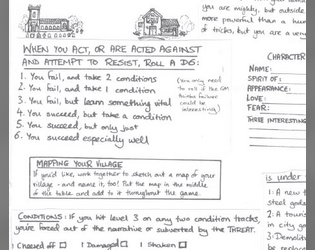 you are mighty, but outside
more powerful than a hum
of tricks, but you are a ver
WHEN YOU ACT, OR ARE ACTED AGAINST
AND ATTEMPT TO RESIST, ROLL A D6:
1. You fail, and take 2 conditions
2. You fail, and take 1 condition
3. You fail, but learn something vital
4. You succeed, but take a condition
5. You succeed, but only just
6. You succeed especially well
(You only need
to roll if the GM
thinks failure
could be
interesting)
CHARACTER
NAME:
SPIRIT OF:
APPEARANCE:
LOVE:
FEAR:
THREE INTERESTING
MAPPING YOUR VILLAGE
If you'd like, work together to sketch out a map of your
village - and name it, too! Put the map in the middle
of the table and add to it throughout the game.
is under
1: A new
steel gods
2: A touris
in city go
3: Demoliti
be replace
CONDITIONS: If you hit level 3 on any two condition tracks,
you're forced out of the narrative or subverted by the THREAT.
1 Cheesed off
1 Damaged
1 Shaken